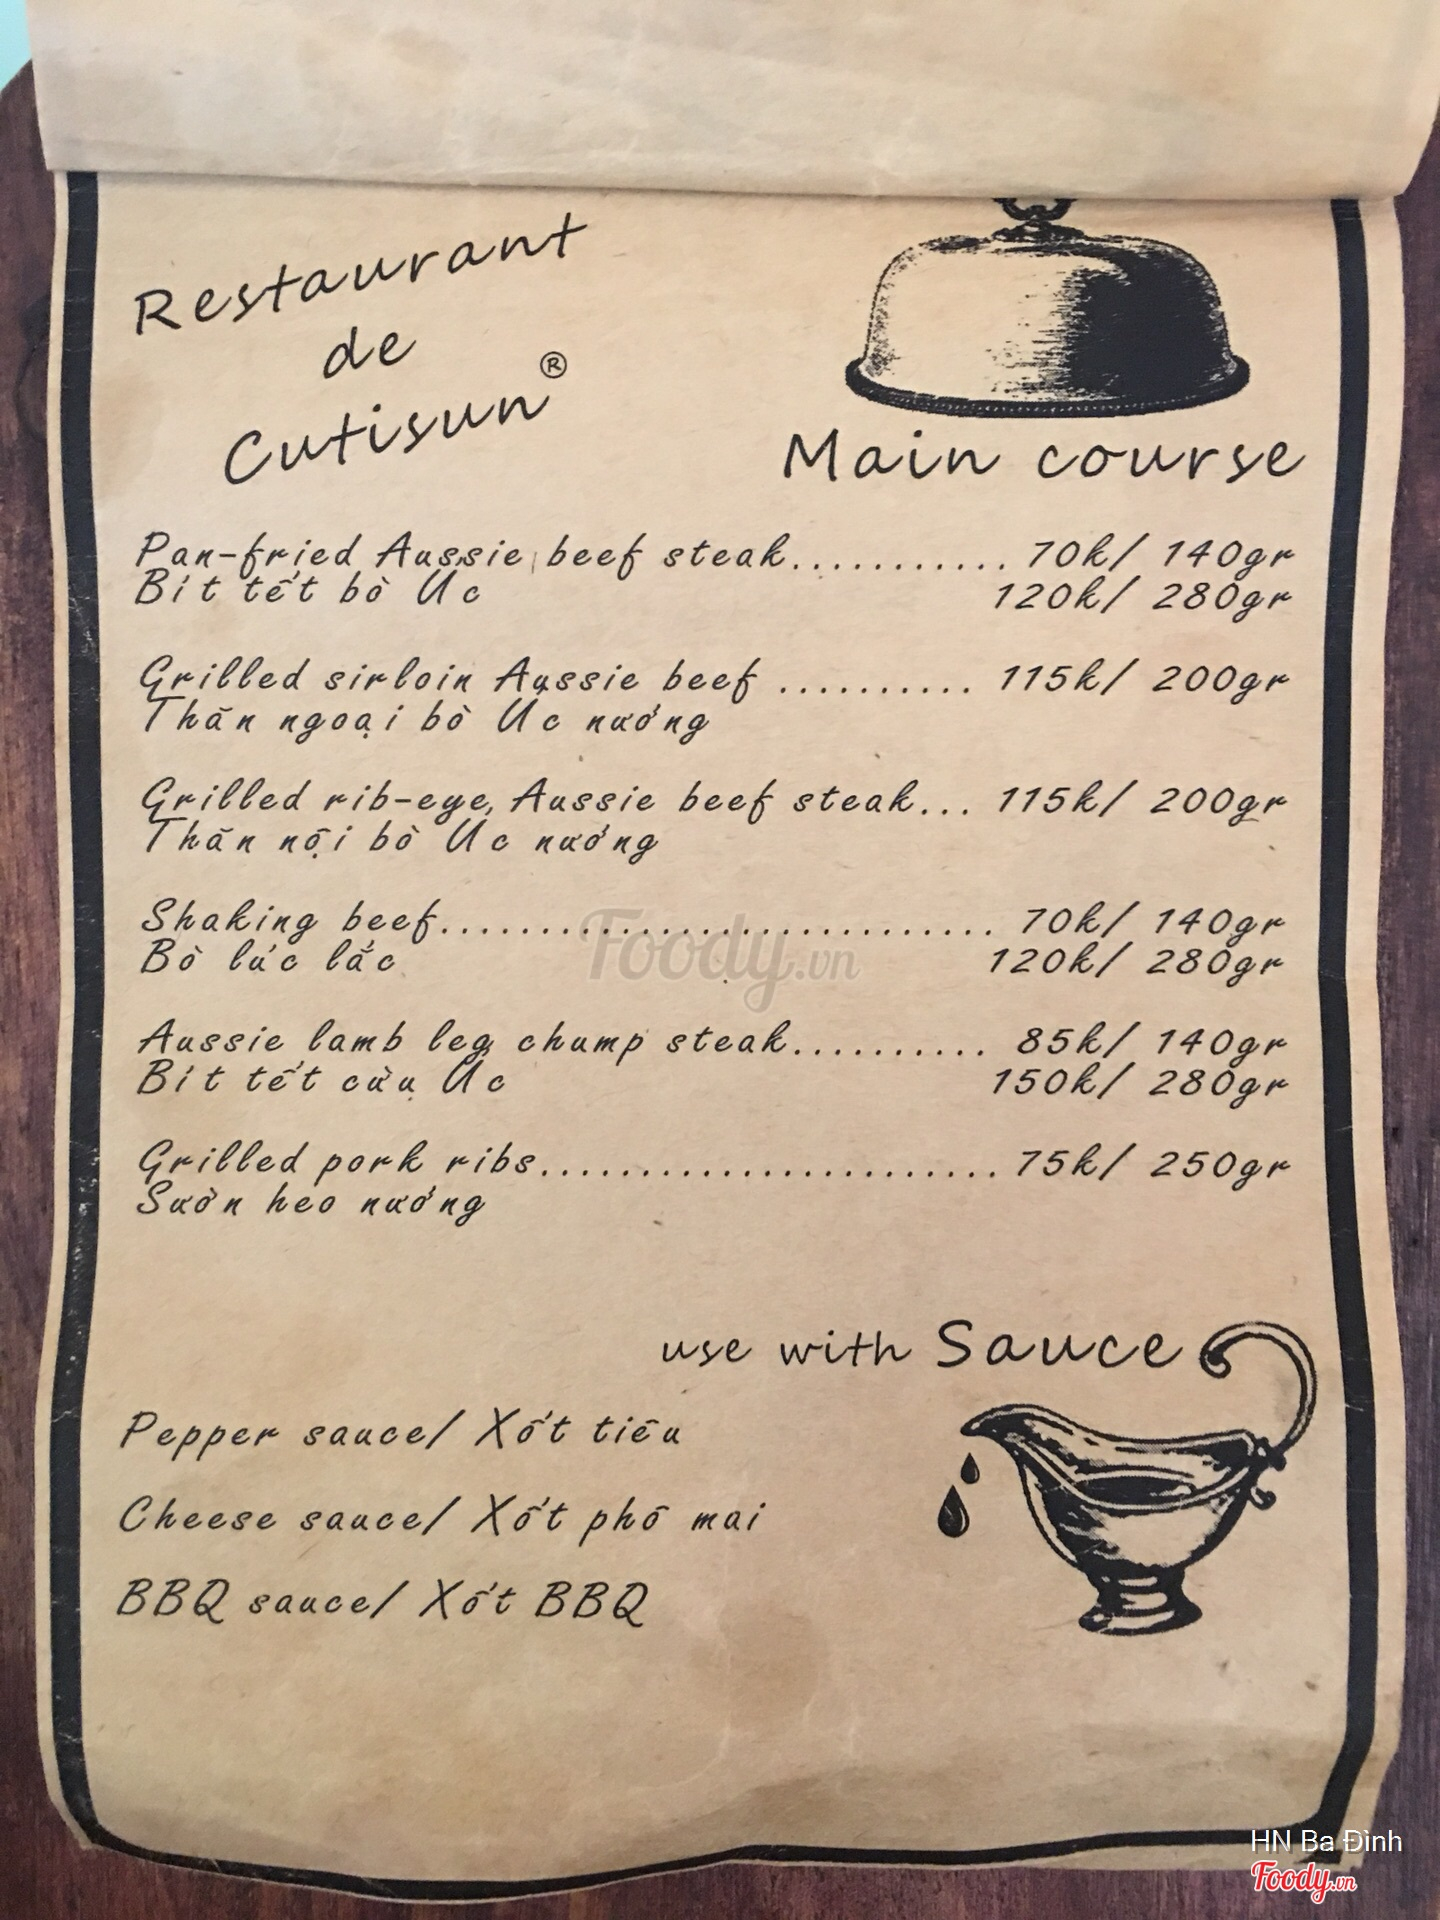 Restaurant
de
Cutisun®
Main course
Pan-fried Aussie beef steak........... 70k/ 140gr
Bít tết bò Úc 120k/ 280gr
Grilled sirloin Aussie beef .......... 115k/ 200gr
Thăn ngoại bò Úc nướng
Grilled rib-eye Aussie beef steak... 115k/ 200gr
Thăn nội bò Úc nướng
Shaking beef............................ 70k/ 140gr
Bò lúc lắc 120k/ 280gr
Aussie lamb leg chump steak.......... 85k/ 140gr
Bít tết cừu Úc 150k/ 280gr
Grilled pork ribs....................... 75k/ 250gr
Sườn heo nướng
use with Sauce
Pepper sauce/ Xốt tiêu
Cheese sauce/ Xốt phô mai
BBQ sauce/ Xốt BBQ
Foody.vn
HN Ba Đình
Foody.vn